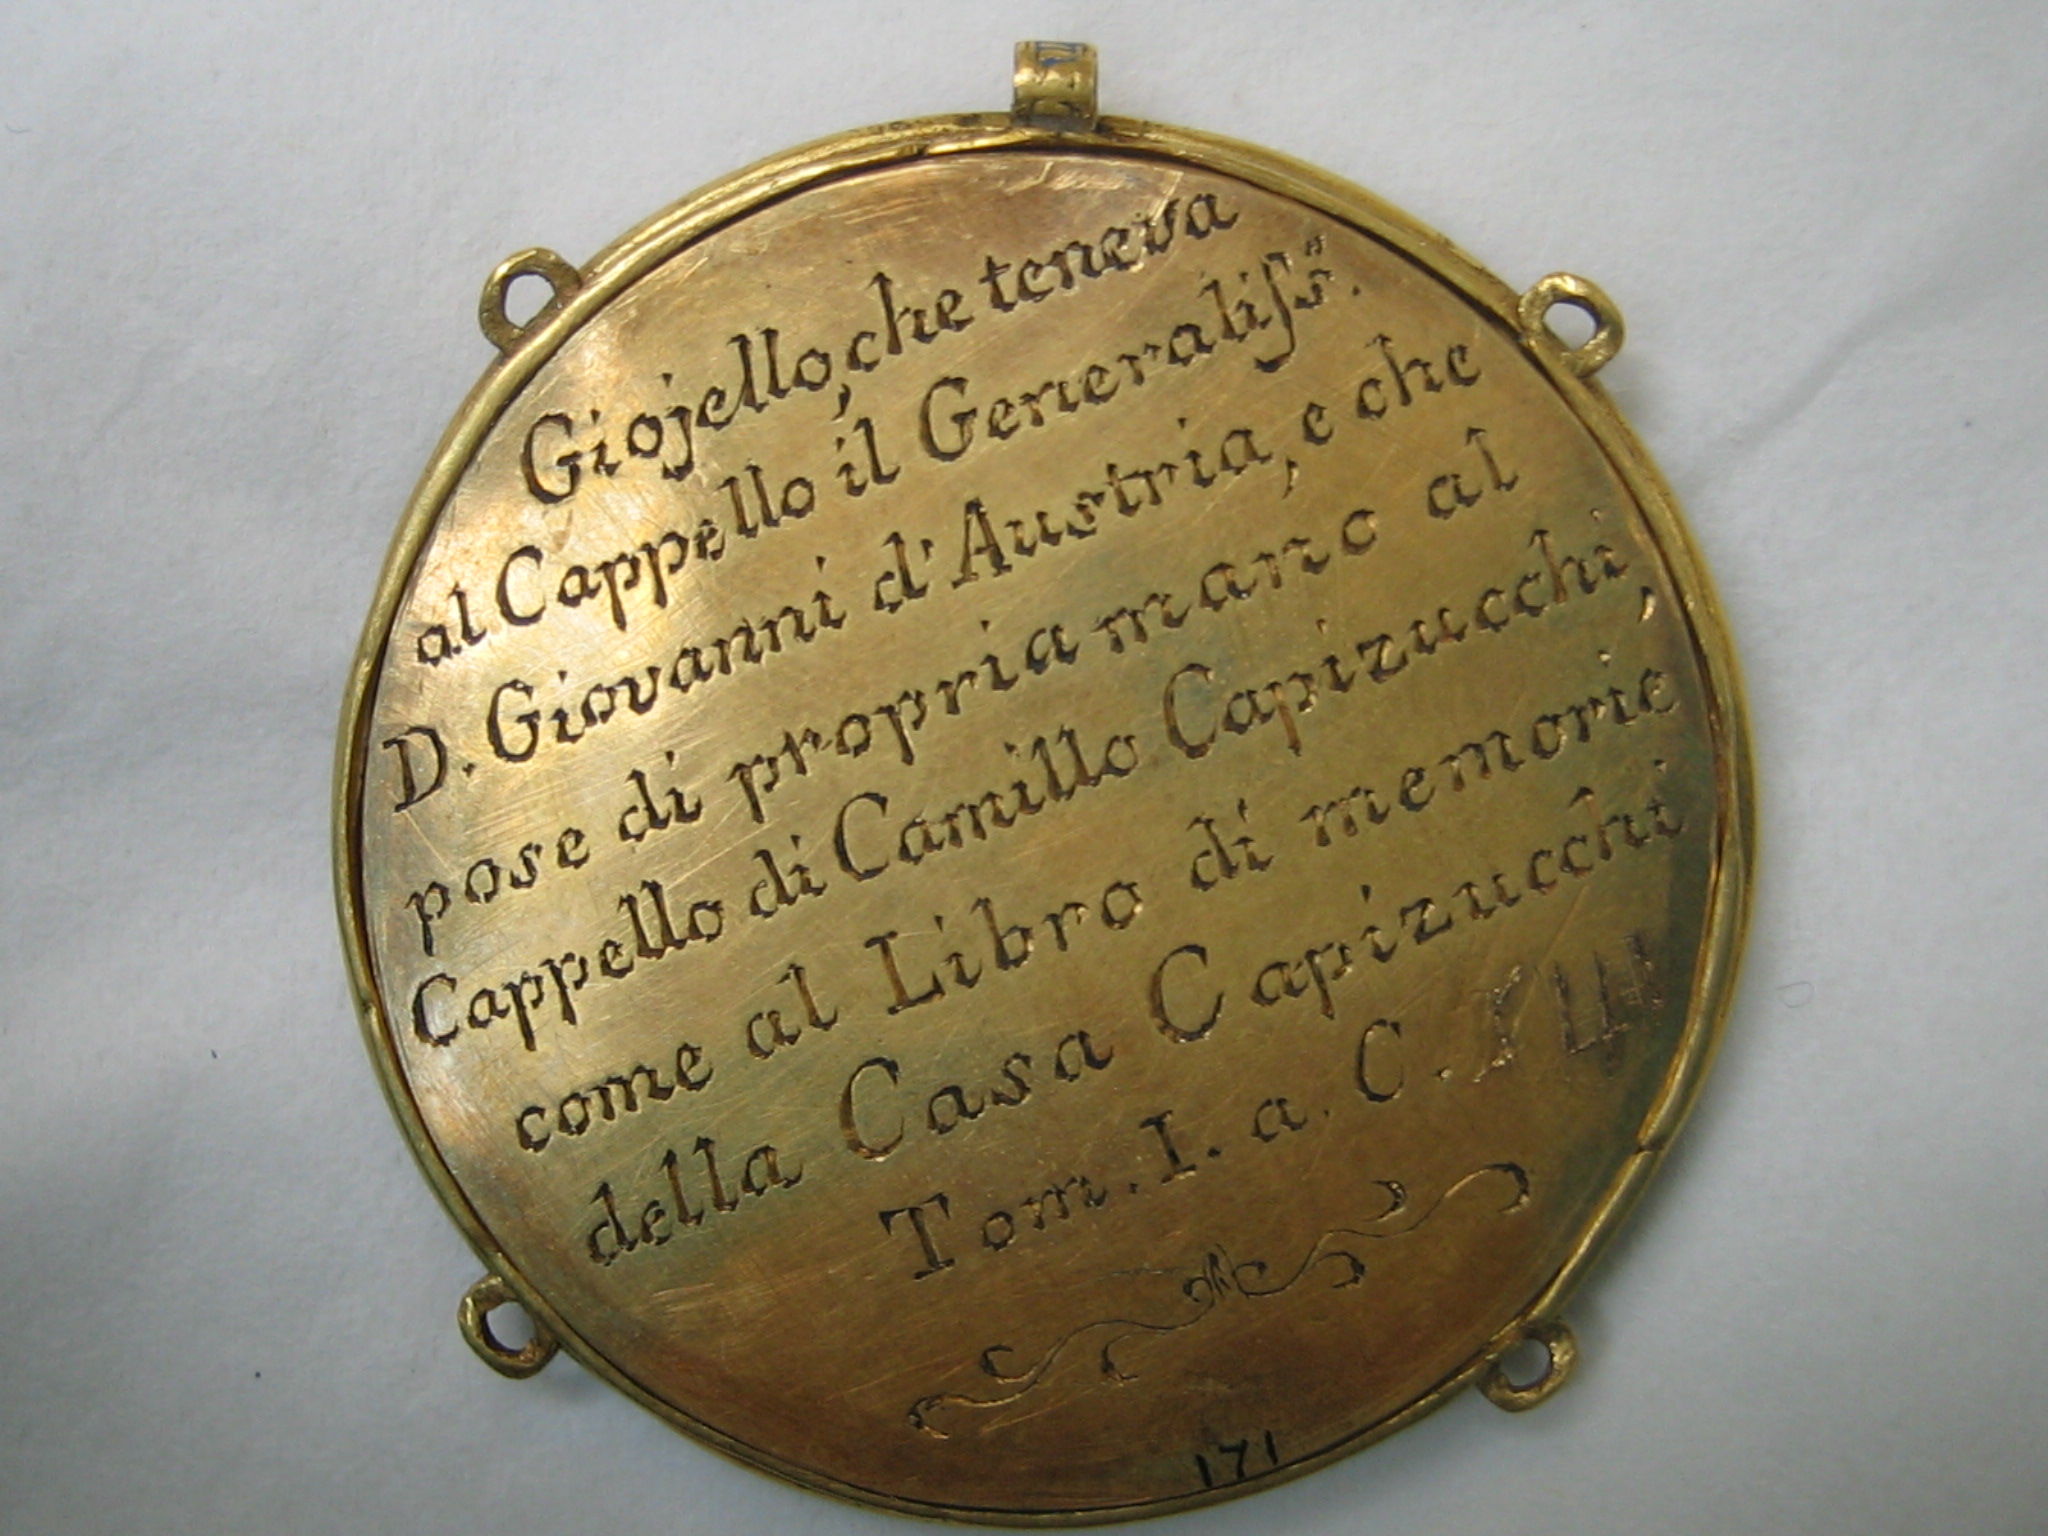 Giojello, che teneva
al Cappello il Generaliſsº.
D. Giovanni d'Austria, e che
pose di propria mano al
Cappello di Camillo Capizucchi,
come al Libro di memorie
della Casa Capizucchi
Tom. I. a. C.
171